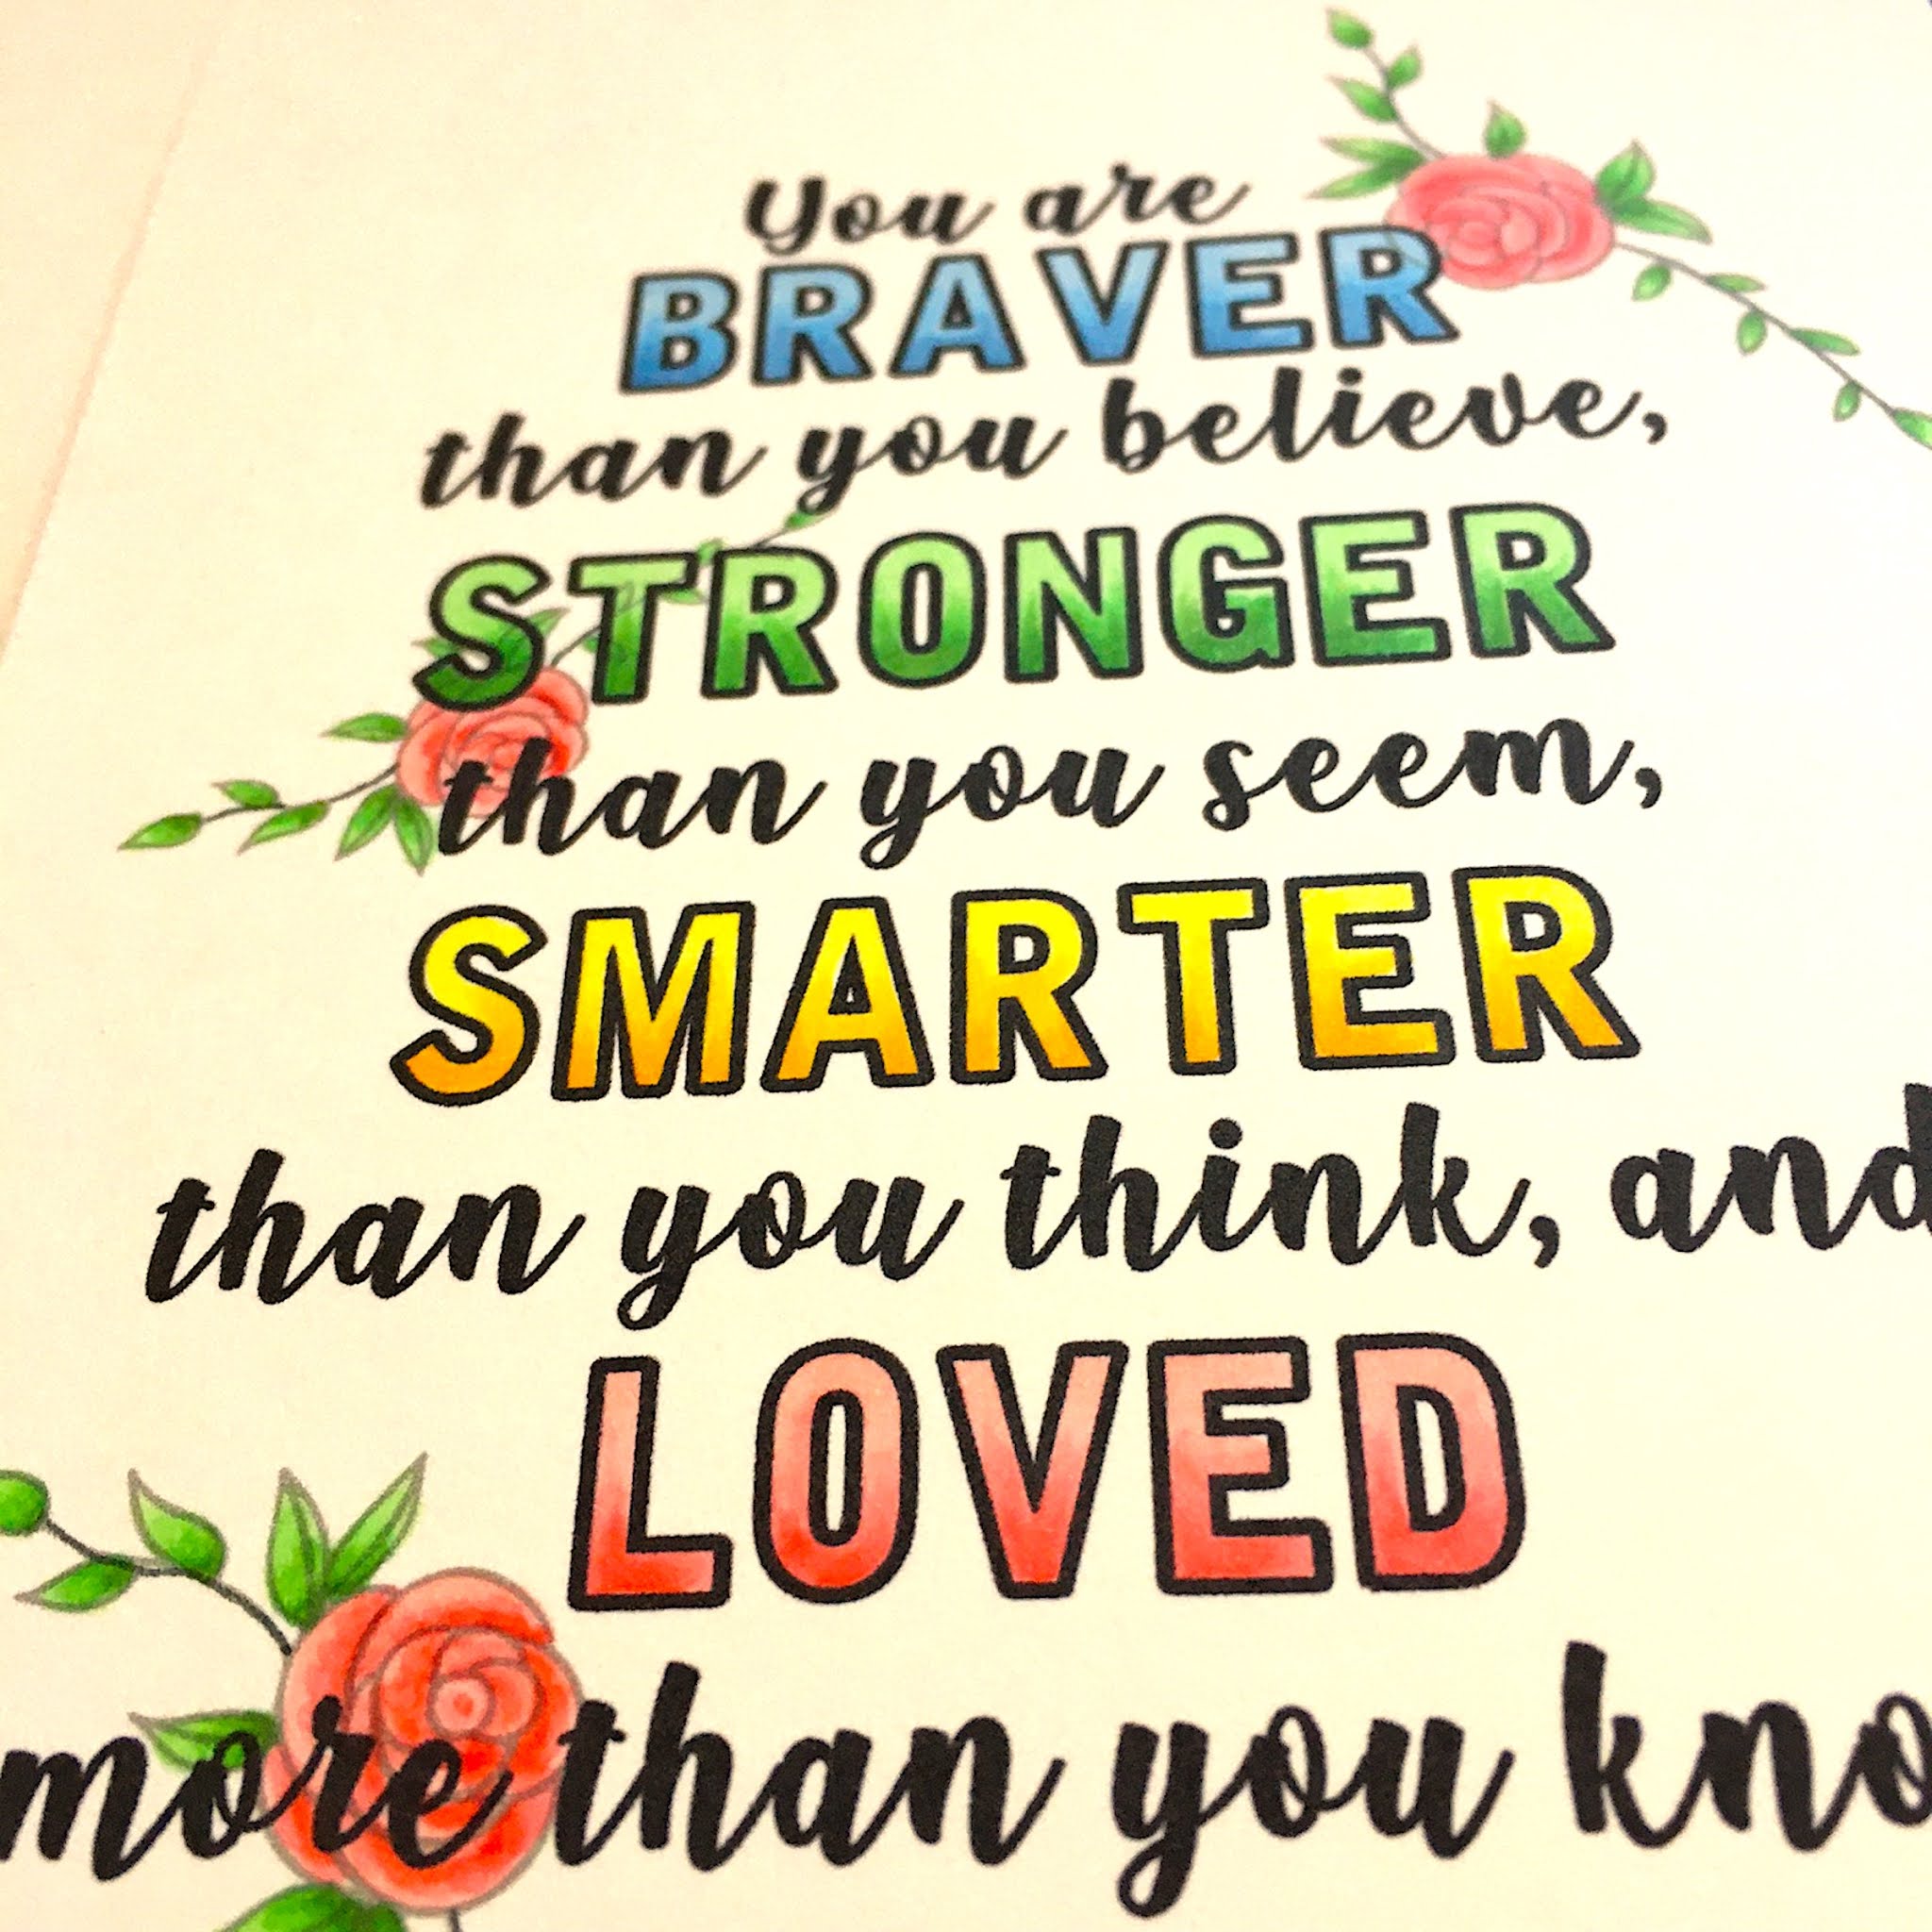 You are
BRAVER
than you believe,
STRONGER
than you seem,
SMARTER
than you think, and
LOVED
more than you kno